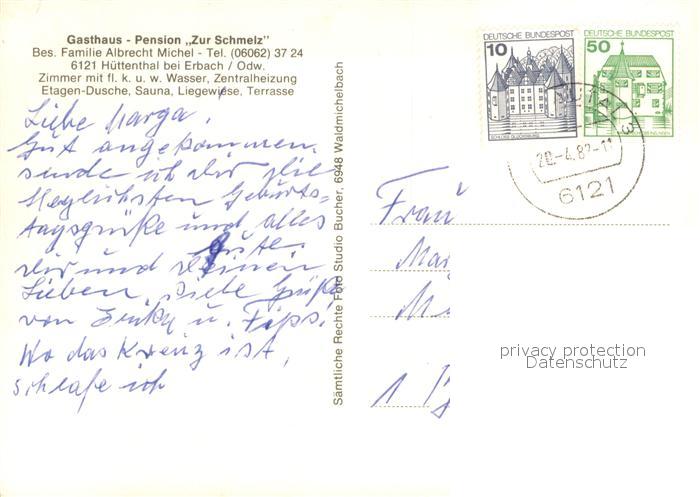 Gasthaus - Pension „Zur Schmelz"
Bes. Familie Albrecht Michel - Tel. (06062) 37 24
6121 Hüttenthal bei Erbach / Odw.
Zimmer mit fl. k. u. w. Wasser, Zentralheizung
Etagen-Dusche, Sauna, Liegewiese, Terrasse
Liebe Marga,
Gut angekommen,
sende ich dir die
Herzlichsten Geburts-
tagsgrüße und alles
Gute.
Dir und Deinen
Lieben, viele Grüße
von u. Fips.
Wo das Kreuz ist,
schlafe ich
Sämtliche Rechte Foto Studio Bucher, 6948 Waldmichelbach
10
DEUTSCHE BUNDESPOST
SCHLOSS GLÜCKSBURG
50
DEUTSCHE BUNDESPOST
20.-4.82-11
6121
Frau
1
privacy protection
Datenschutz